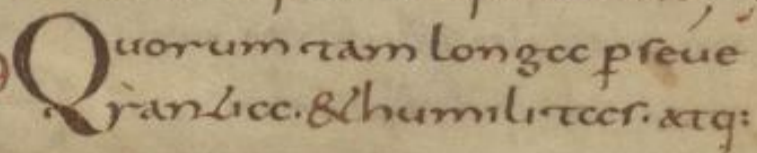 Quorum tam longa ꝑseue
rantia. & humilitas. atq: